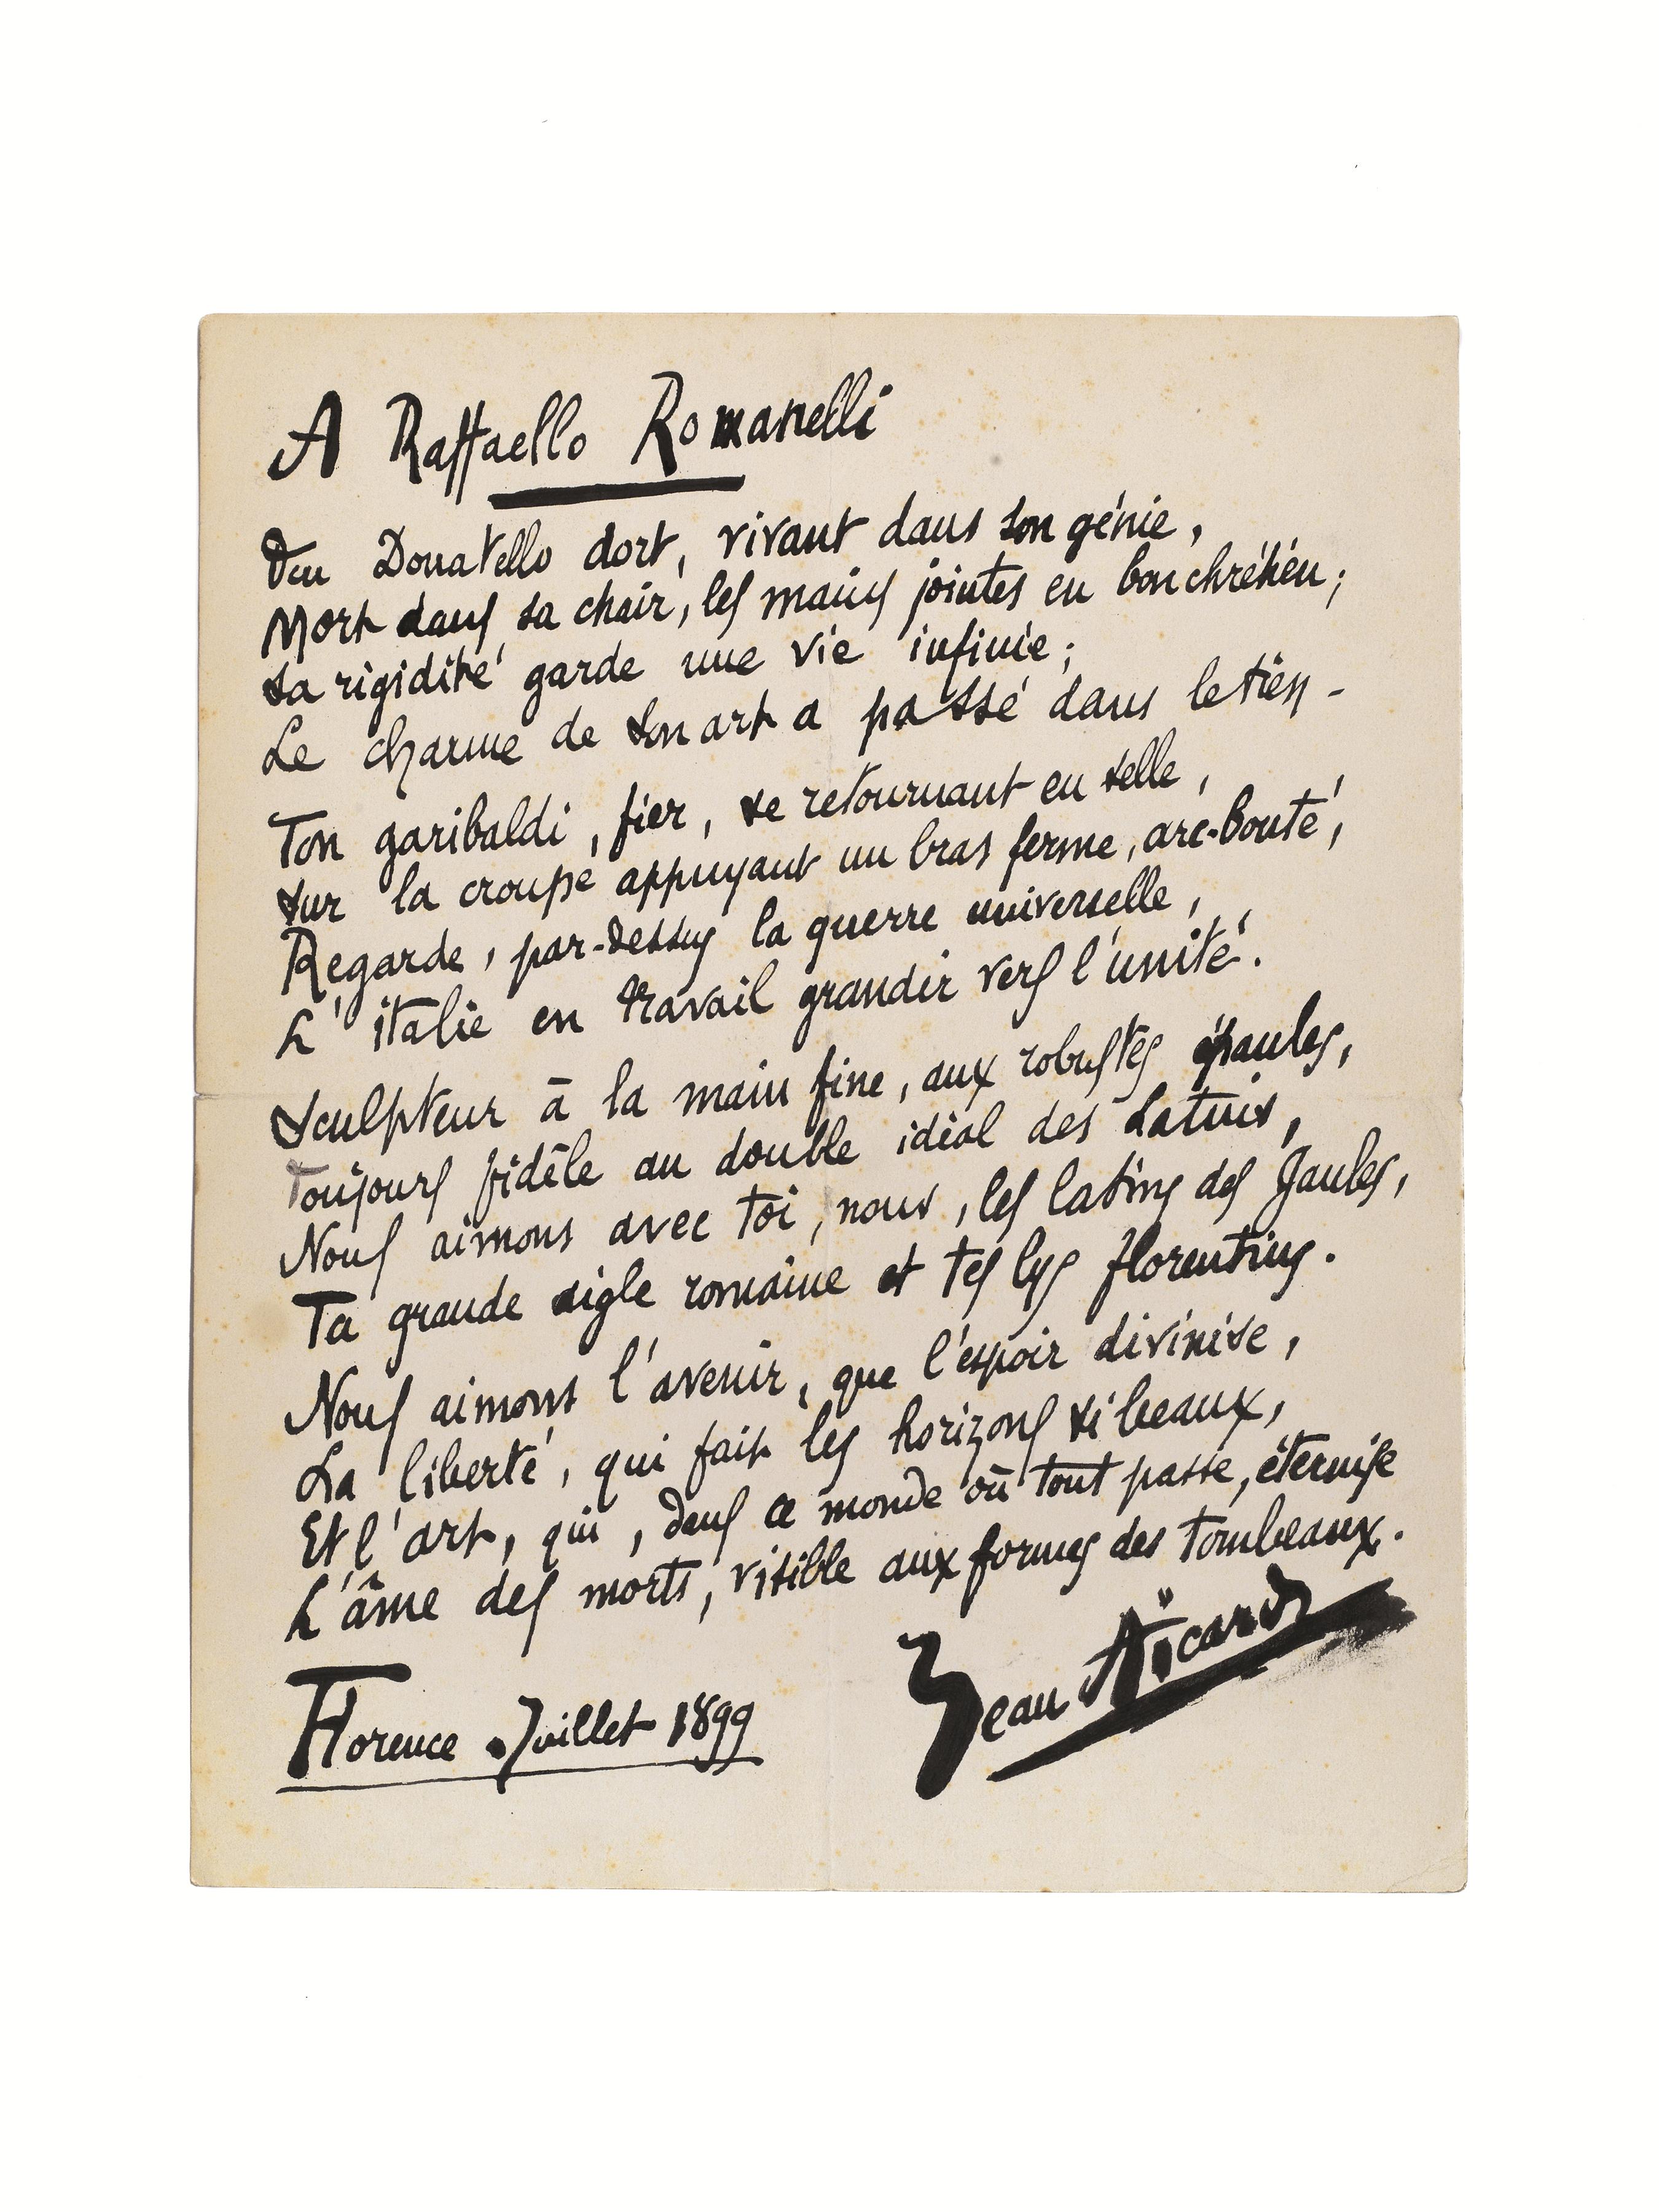 A Raffaello Romanelli
Ton Donatello dort, vivant dans son génie,
Mort dans sa chair, les mains jointes en bon chrétien;
Sa rigidité garde une vie infinie;
Le charme de son art a passé dans le tien -
Ton garibaldi, fier, se retournant en selle,
Sur la croupe appuyant un bras ferme, arc-bouté,
Regarde, par-dessus la guerre universelle,
L'italie en travail grandir vers l'unité.
Sculpteur à la main fine, aux robustes épaules,
Toujours fidèle au double idéal des Latins,
Nous aimons avec toi, nous, les latins des Gaules,
Ta grande aigle romaine et tes lys florentins.
Nous aimons l'avenir, que l'espoir divinise,
La liberté, qui fait les horizons si beaux,
Et l'art, qui, dans ce monde où tout passe, éternise
L'âme des morts, visible aux formes des tombeaux.
Jean Aicard
Florence. Juillet 1899